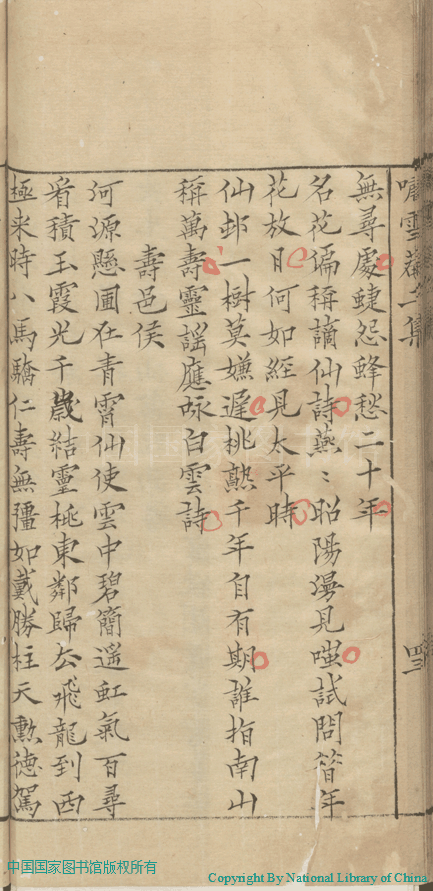 雪菴
無尋處蜨怨蜂愁二十年
名花偏稱謫仙詩燕〻昭陽漫見嗤試問年
花放日何如經見太平時
仙邨一樹莫嫌遲桃熟千年自有期誰指南山
稱萬壽靈謠應咏白雲詩
壽邑侯
河源懸圃在青霄仙使雲中碧簡遥虹氣百尋
看積玉霞光千歲結靈桃東鄰歸去飛龍到西
極来時八馬驕仁壽無彊如戴勝柱天勲德駕
中国国家图书馆版权所有
Copyright By National Library of China